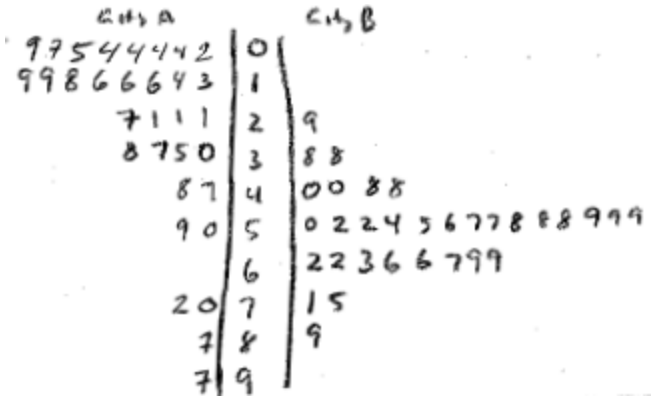 City A City B
9 7 5 4 4 4 4 2 0
9 9 8 6 6 6 4 3 1
7 1 1 1 2 9
8 7 5 0 3 8 8
8 7 4 0 0 8 8
9 0 5 0 2 2 4 5 6 7 7 8 8 8 9 9 9
6 2 2 3 6 6 7 9 9
2 0 7 1 5
7 8 9
7 9